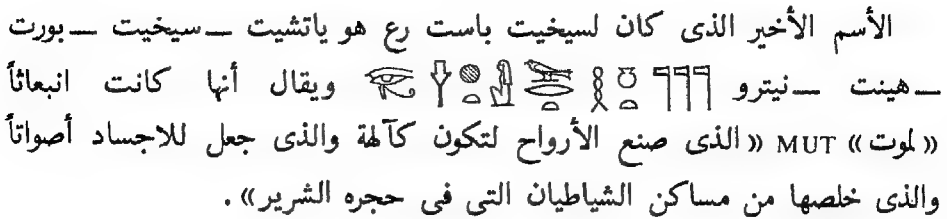 الأسم الأخير الذى كان لسيخيت باست رع هو ياتشيت ــ سيخيت ــ بورت
ــ هينت ــ نيترو ويقال أنها كانت انبعاثاً
« لموت » MUT « الذى صنع الأرواح لتكون كآلهة والذى جعل للاجساد أصواتاً
والذى خلصها من مساكن الشياطيان التى فى حجره الشرير » .